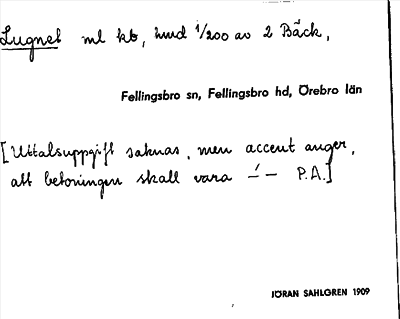 Lugnet ml kb, hud 1/200 av 2 Bäck,
Fellingsbro sn, Fellingsbro hd, Örebro län
[Uttalsuppgift saknas, men accent anger,
att betoningen skall vara –́ – P.A.]
JÖRAN SAHLGREN 1909